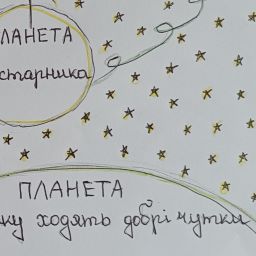 ЛАНЕТА
старника
ПЛАНЕТА
ку ходять добрі чутки